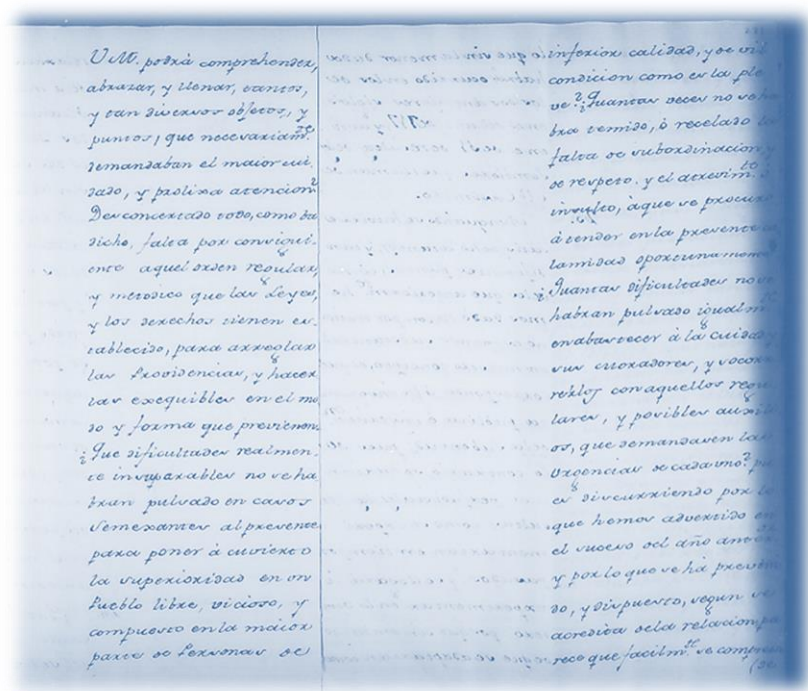 V.M. podrá comprehender,
abrazar, y llenar, tantos,
y tan diversos objetos, y
puntos, que necesariamte
demandaban el maior cui-
dado, y prolixa atencion?
Desconcertado todo, como ba
dicho, falta por consigui-
ente aquel orden regular,
y metodico que las Leyes,
y los derechos tienen es-
tablecido, para arreglar
las Providencias, y hacer
las exequibles en el mo
do y forma que previenen.
¿Que dificultades realmen-
te insuperables no se ha
bran pulsado en casos
Semexantes al presente
para poner á cuvierto
la superioridad en un
Pueblo libre, vicioso, y
compuesto en la maior
parte de Personas de
inferior calidad, y de vil
condicion como es la ple
ve? ¿Quantas veces no se ha
bra temido, ó recelado la
falta de subordinacion, y
de respeto, y el atrevimto
insulto, á que se procuró
atender en la presente ca
lamidad oportunamente
¿Quantas dificultades no se
habran pulsado igualmte
en abastecer á la cuidad y
sus moradores, y socor
rerlos con aquellos regu
lares, y posibles auxili
os, que demandasen las
Urgencias de cada uno?
es discurriendo por lo
que hemos advertido en
el suceso del año
y por lo que se há preveni
do, y dispuesto, segun se
acredita dela relacion, pa
rece que facilmte se